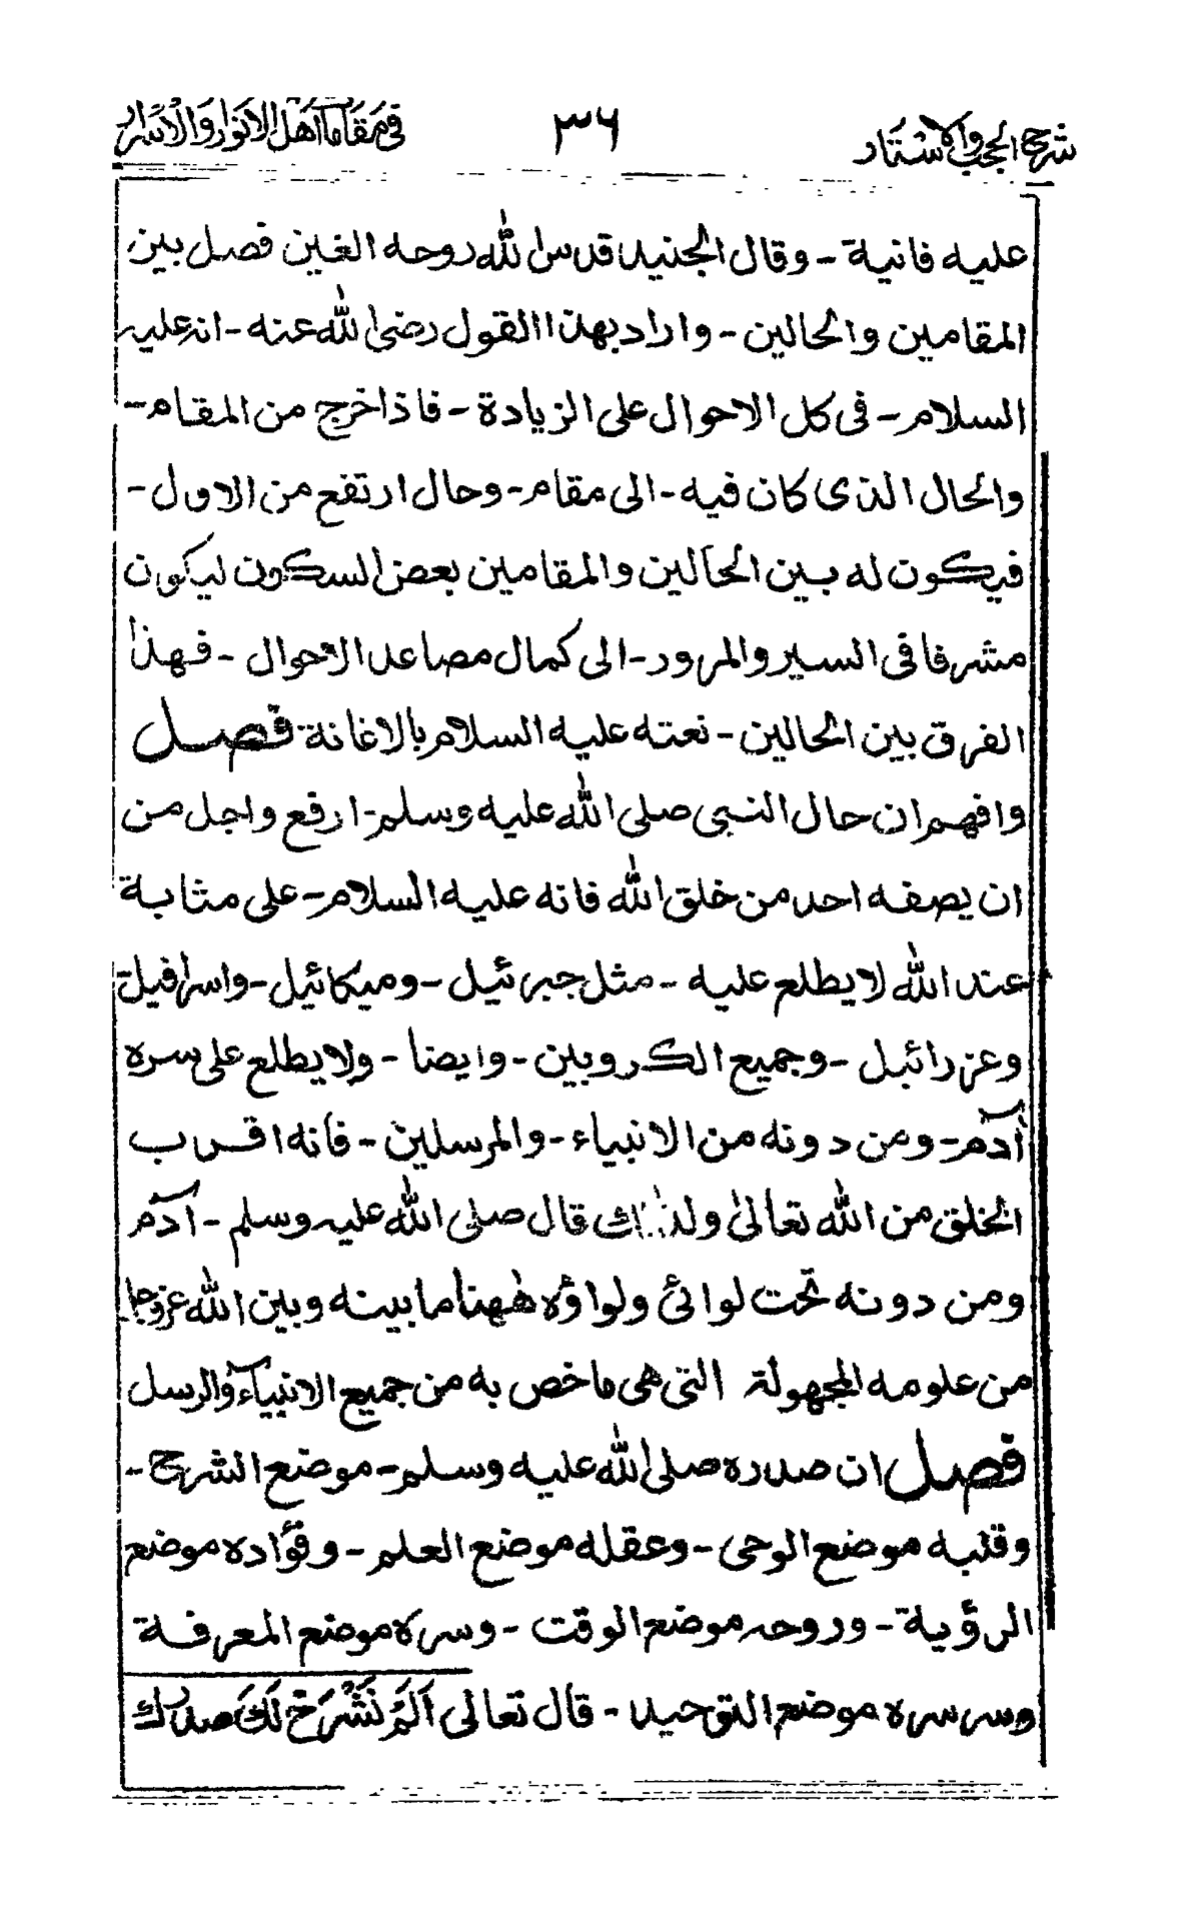 شرح الحجب والاستار ٣٦ في مقامات اهل الانوار والاسرار
عليه فانية - وقال الجنيد قدس الله روحه الغين فصل بين
المقامين والحالين - واراد بهذا القول رضى الله عنه - انه عليه
السلام - فى كل الاحوال على الزيادة - فاذا خرج من المقام -
والحال الذى كان فيه - الى مقام - وحال ارتفع من الاول -
فيكون له بين الحالين والمقامين بعض السكون ليكون
مشرفا فى السير والمرور - الى كمال مصاعد الاحوال - فهذا
الفرق بين الحالين - نعته عليه السلام بالاغانة فصل
وافهم ان حال النبى صلى الله عليه وسلم - ارفع واجل من
ان يصفه احد من خلق الله فانه عليه السلام - على مثابة
عند الله لا يطلع عليه - مثل جبرئيل - وميكائيل - واسرافيل -
وعزرائيل - وجميع الكروبين - وايضا - ولا يطلع على سره
آدم - ومن دونه من الانبياء - والمرسلين - فانه اقرب
الخلق من الله تعالىٰ ولذٰلك قال صلى الله عليه وسلم - آدم
ومن دونه تحت لوائى ولواؤه هٰهنا ما بينه وبين الله عزوجل
من علومه المجهولة التى هى ما خص به من جميع الانبياء والرسل
فصل ان صدره صلى الله عليه وسلم - موضع الشرح -
وقلبه موضع الوحى - وعقله موضع العلم - وفؤاده موضع
الرؤية - وروحه موضع الوقت - وسره موضع المعرفة
وسر سره موضع التوحيد - قال تعالى اَلَمْ نَشْرَحْ لَكَ صدرك